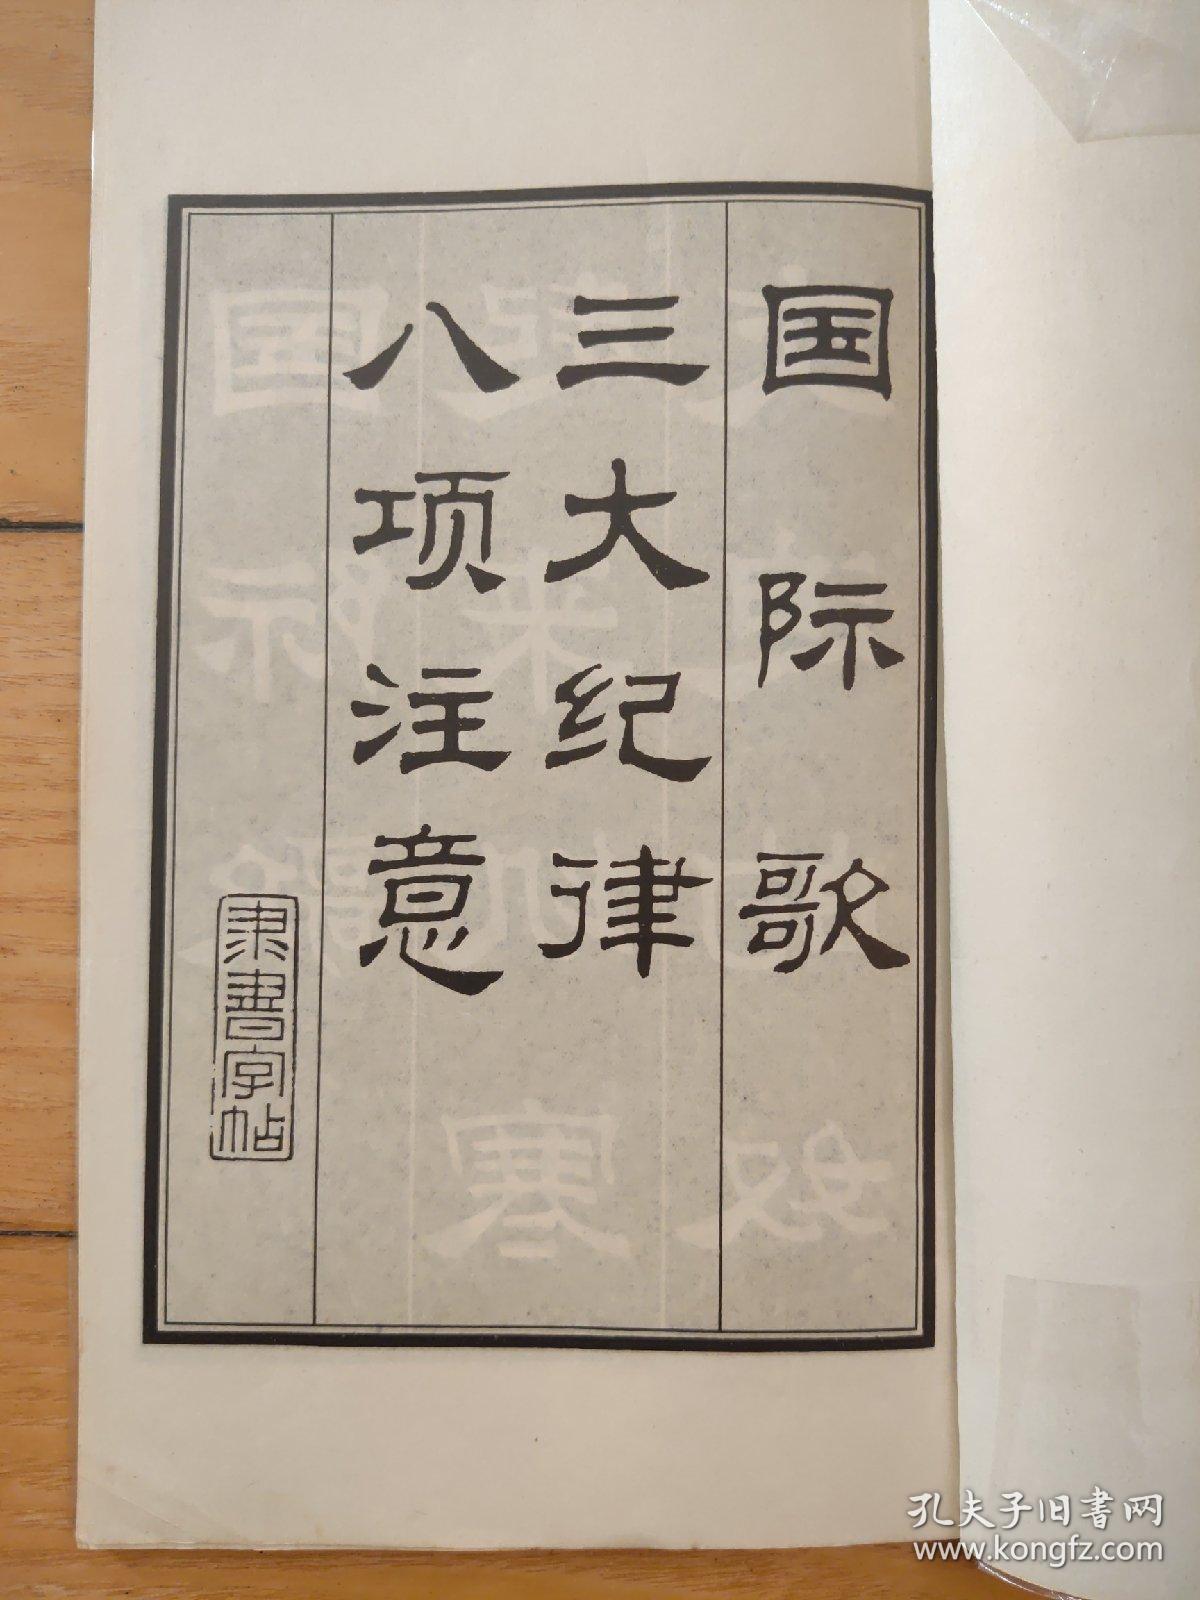 国际歌
三大纪律
八项注意
隶书字帖
孔夫子旧书网
www.kongfz.com